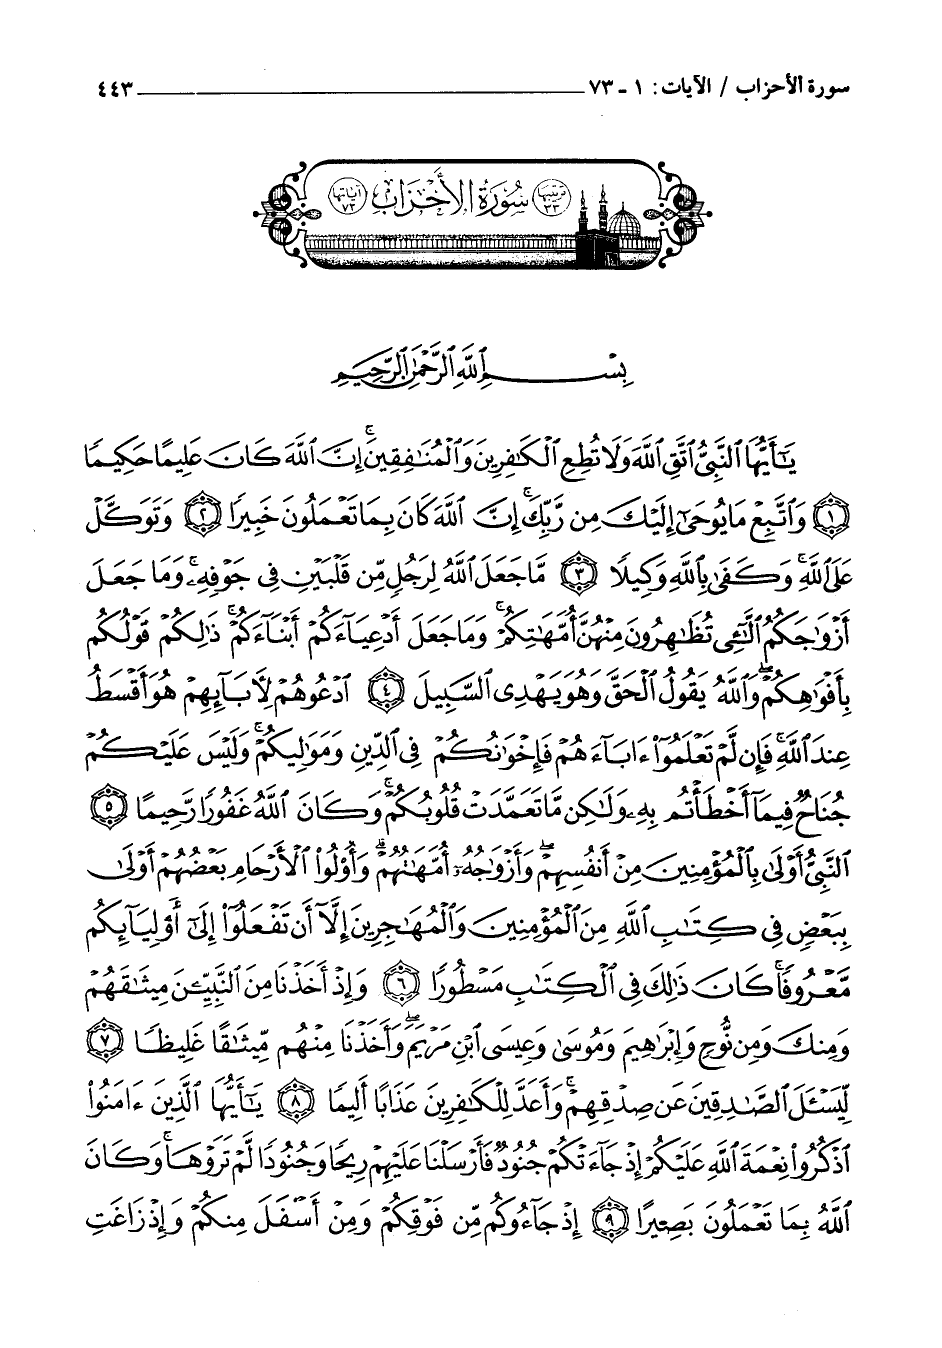 سورة الأحزاب / الآيات: ١ - ٧٣ ٤٤٣
ترتيبها ٣٣ سُورَةُ الأَحْزَابِ آياتها ٧٣
بِسْمِ اللَّهِ الرَّحْمَٰنِ الرَّحِيمِ
يَٰٓأَيُّهَا ٱلنَّبِىُّ ٱتَّقِ ٱللَّهَ وَلَا تُطِعِ ٱلْكَٰفِرِينَ وَٱلْمُنَٰفِقِينَ ۚ إِنَّ ٱللَّهَ كَانَ عَلِيمًا حَكِيمًا
١ وَٱتَّبِعْ مَا يُوحَىٰٓ إِلَيْكَ مِن رَّبِّكَ ۚ إِنَّ ٱللَّهَ كَانَ بِمَا تَعْمَلُونَ خَبِيرًا ٢ وَتَوَكَّلْ
عَلَى ٱللَّهِ ۚ وَكَفَىٰ بِٱللَّهِ وَكِيلًا ٣ مَّا جَعَلَ ٱللَّهُ لِرَجُلٍ مِّن قَلْبَيْنِ فِى جَوْفِهِۦ ۚ وَمَا جَعَلَ
أَزْوَٰجَكُمُ ٱلَّٰٓـِٔى تُظَٰهِرُونَ مِنْهُنَّ أُمَّهَٰتِكُمْ ۚ وَمَا جَعَلَ أَدْعِيَآءَكُمْ أَبْنَآءَكُمْ ۚ ذَٰلِكُمْ قَوْلُكُم
بِأَفْوَٰهِكُمْ ۖ وَٱللَّهُ يَقُولُ ٱلْحَقَّ وَهُوَ يَهْدِى ٱلسَّبِيلَ ٤ ٱدْعُوهُمْ لِءَابَآئِهِمْ هُوَ أَقْسَطُ
عِندَ ٱللَّهِ ۚ فَإِن لَّمْ تَعْلَمُوٓا۟ ءَابَآءَهُمْ فَإِخْوَٰنُكُمْ فِى ٱلدِّينِ وَمَوَٰلِيكُمْ ۚ وَلَيْسَ عَلَيْكُمْ
جُنَاحٌ فِيمَآ أَخْطَأْتُم بِهِۦ وَلَٰكِن مَّا تَعَمَّدَتْ قُلُوبُكُمْ ۚ وَكَانَ ٱللَّهُ غَفُورًا رَّحِيمًا ٥
ٱلنَّبِىُّ أَوْلَىٰ بِٱلْمُؤْمِنِينَ مِنْ أَنفُسِهِمْ ۖ وَأَزْوَٰجُهُۥٓ أُمَّهَٰتُهُمْ ۗ وَأُو۟لُوا۟ ٱلْأَرْحَامِ بَعْضُهُمْ أَوْلَىٰ
بِبَعْضٍ فِى كِتَٰبِ ٱللَّهِ مِنَ ٱلْمُؤْمِنِينَ وَٱلْمُهَٰجِرِينَ إِلَّآ أَن تَفْعَلُوٓا۟ إِلَىٰٓ أَوْلِيَآئِكُم
مَّعْرُوفًا ۚ كَانَ ذَٰلِكَ فِى ٱلْكِتَٰبِ مَسْطُورًا ٦ وَإِذْ أَخَذْنَا مِنَ ٱلنَّبِيِّۦنَ مِيثَٰقَهُمْ
وَمِنكَ وَمِن نُّوحٍ وَإِبْرَٰهِيمَ وَمُوسَىٰ وَعِيسَى ٱبْنِ مَرْيَمَ ۖ وَأَخَذْنَا مِنْهُم مِّيثَٰقًا غَلِيظًا ٧
لِّيَسْـَٔلَ ٱلصَّٰدِقِينَ عَن صِدْقِهِمْ ۚ وَأَعَدَّ لِلْكَٰفِرِينَ عَذَابًا أَلِيمًا ٨ يَٰٓأَيُّهَا ٱلَّذِينَ ءَامَنُوا۟
ٱذْكُرُوا۟ نِعْمَةَ ٱللَّهِ عَلَيْكُمْ إِذْ جَآءَتْكُمْ جُنُودٌ فَأَرْسَلْنَا عَلَيْهِمْ رِيحًا وَجُنُودًا لَّمْ تَرَوْهَا ۚ وَكَانَ
ٱللَّهُ بِمَا تَعْمَلُونَ بَصِيرًا ٩ إِذْ جَآءُوكُم مِّن فَوْقِكُمْ وَمِنْ أَسْفَلَ مِنكُمْ وَإِذْ زَاغَتِ